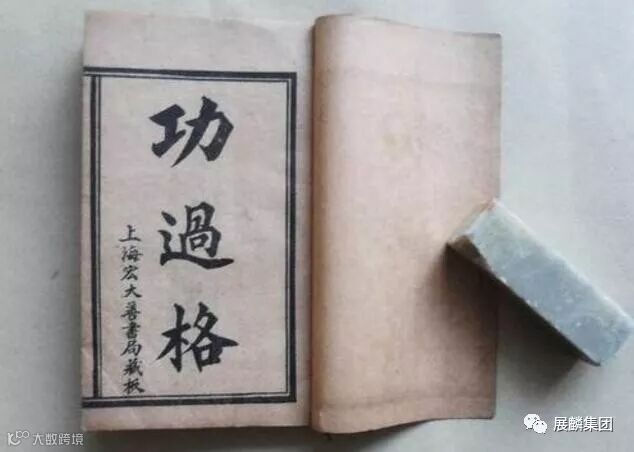 功過格
上海宏大善書局藏板
大数跨境
展麟集团